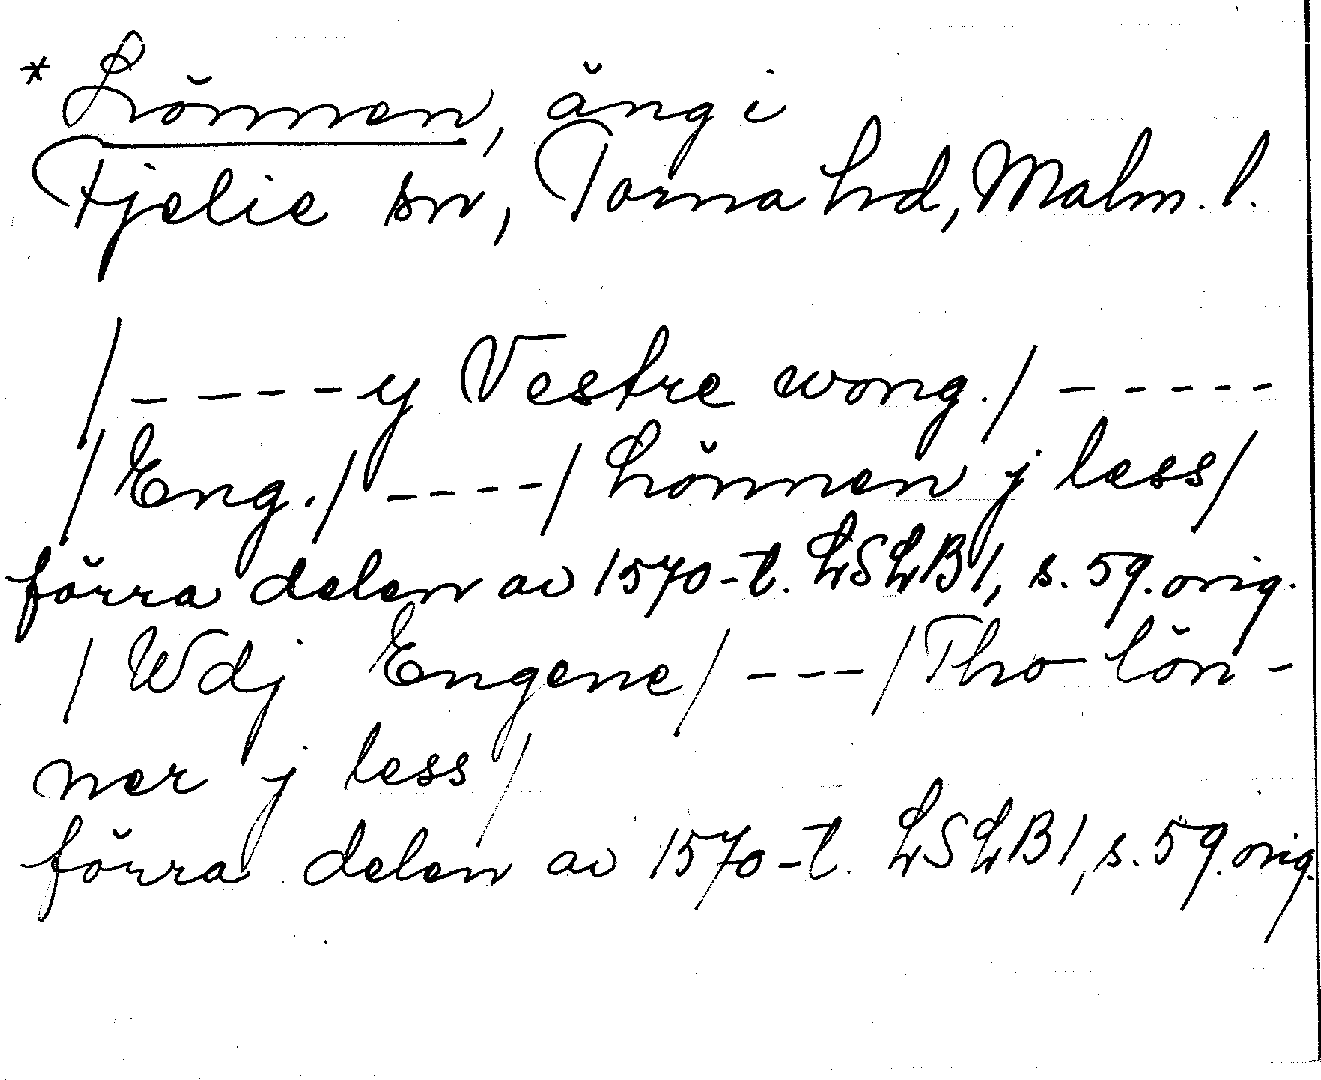 * Lönnen, äng i
Fjelie sn, Torna hd, Malm. l.
/ - - - - y Vestre wong. / - - - - -
/ Eng. / - - - - / Lönnen j less /
förra delen av 1570-t. LSLB1, s. 59. orig.
/ Wdj Engene / - - - / Tho lön-
ner j less /
förra delen av 1570-t. LSLB1, s. 59. orig.